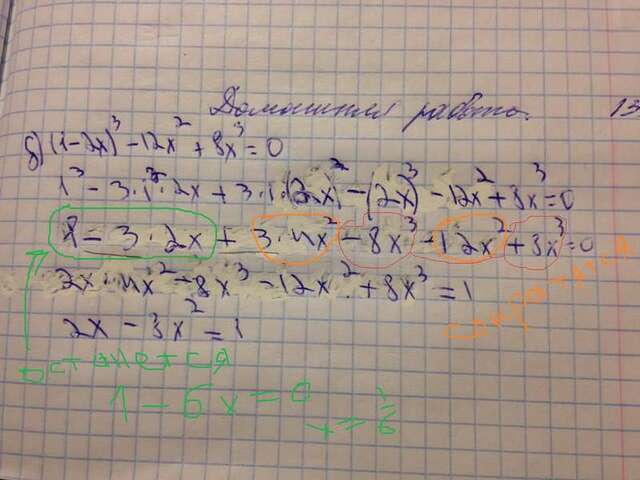 Домашняя работа. 13
б) (1-2x)³ - 12x² + 8x³ = 0
1³ - 3·1²·2x + 3·1·(2x)² - (2x)³ - 12x² + 8x³ = 0
1 - 3·2x + 3·4x² - 8x³ - 12x² + 8x³ = 0
2x·4x² - 8x³ - 12x² + 8x³ = 1
2x - 3x² = 1
сократятся
останется
1 - 6x = 0
x = 1/6